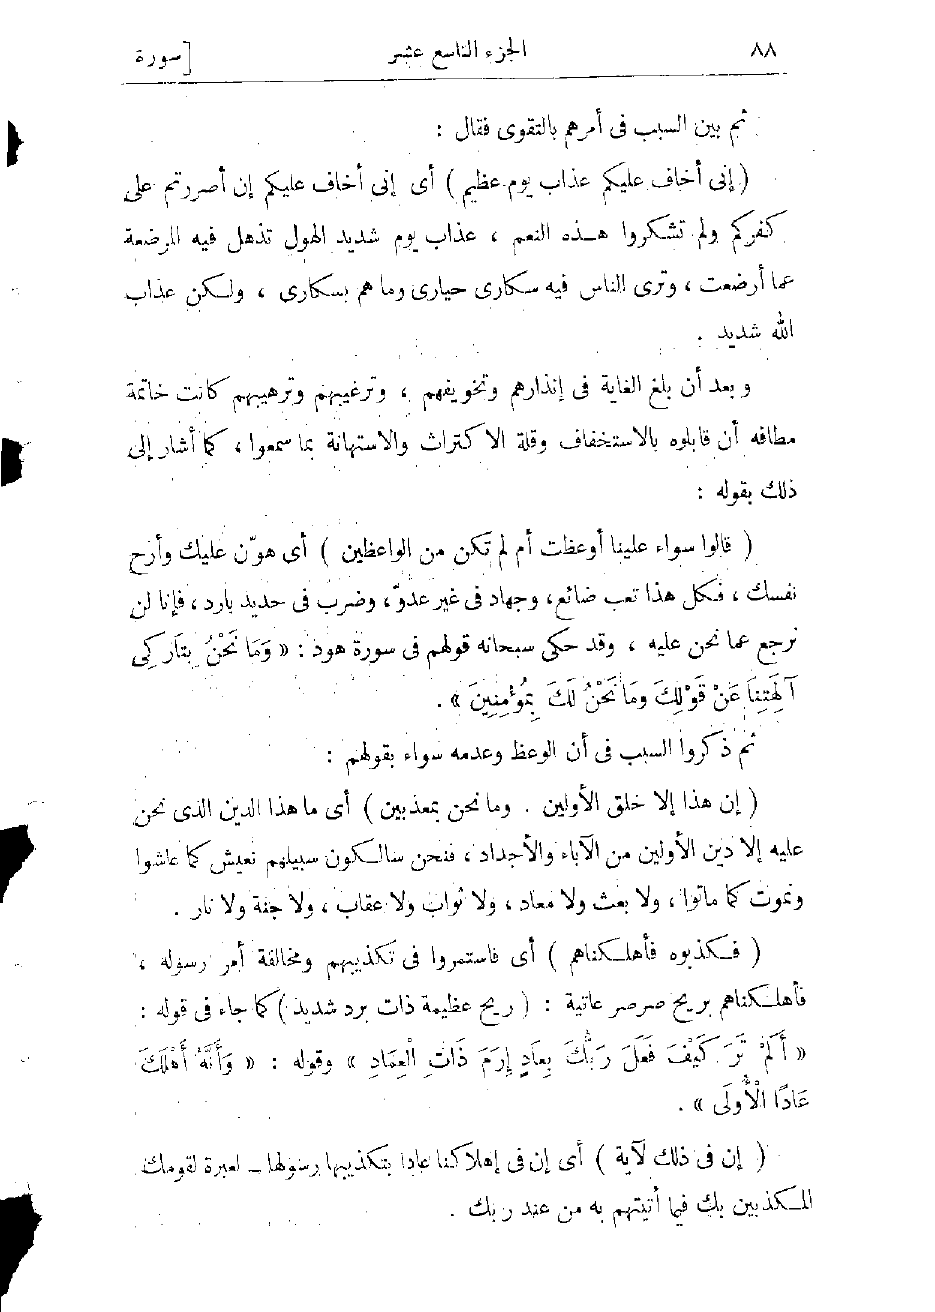 ٨٨ الجزء التاسع عشر [سورة
ثم بين السبب فى أمرهم بالتقوى فقال :
( إنى أخاف عليكم عذاب يوم عظيم ) أى إنى أخاف عليكم إن أصررتم على
كفركم ولم تشكروا هذه النعم ، عذاب يوم شديد الهول تذهل فيه المرضعة
عما أرضعت ، وترى الناس فيه سكارى حيارى وما هم بسكارى ، ولكن عذاب
الله شديد .
وبعد أن بلغ الغاية فى إنذارهم وتخويفهم ، وترغيبهم وترهيبهم كانت خاتمة
مطافه أن قابلوه بالاستخفاف وقلة الاكتراث والاستهانة بما سمعوا ، كما أشار إلى
ذلك بقوله :
( قالوا سواء علينا أوعظت أم لم تكن من الواعظين ) أى هوّن عليك وأرح
نفسك ، فكل هذا تعب ضائع ، وجهاد فى غير عدوّ ، وضرب فى حديد بارد ، فإنا لن
نرجع عما نحن عليه ، وقد حكى سبحانه قولهم فى سورة هود : « وَمَا نَحْنُ بِتَارِكِى
آلِهَتِنَا عَنْ قَوْلِكَ وَمَا نَحْنُ لَكَ بِمُؤْمِنِينَ » .
ثم ذكروا السبب فى أن الوعظ وعدمه سواء بقولهم :
( إن هذا إلا خلق الأولين . وما نحن بمعذبين ) أى ما هذا الدين الذى نحن
عليه إلا دين الأولين من الآباء والأجداد ، فنحن سالكون سبيلهم نعيش كما عاشوا
ونموت كما ماتوا ، ولا بعث ولا معاد ، ولا ثواب ولا عقاب ، ولا جنة ولا نار .
( فكذبوه فأهلكناهم ) أى فاستمروا فى تكذيبهم ومخالفة أمر رسوله ،
فأهلكناهم بريح صرصر عاتية : ( ريح عظيمة ذات برد شديد ) كما جاء فى قوله :
« أَلَمْ تَرَ كَيْفَ فَعَلَ رَبُّكَ بِعَادٍ إِرَمَ ذَاتِ الْعِمَادِ » وقوله : « وَأَنَّهُ أَهْلَكَ
عَادًا الْأُولَى » .
( إن فى ذلك لآية ) أى إن فى إهلاكنا عادا بتكذيبها رسولها - لعبرة لقومك
المكذبين بك فيما أتيتهم به من عند ربك .